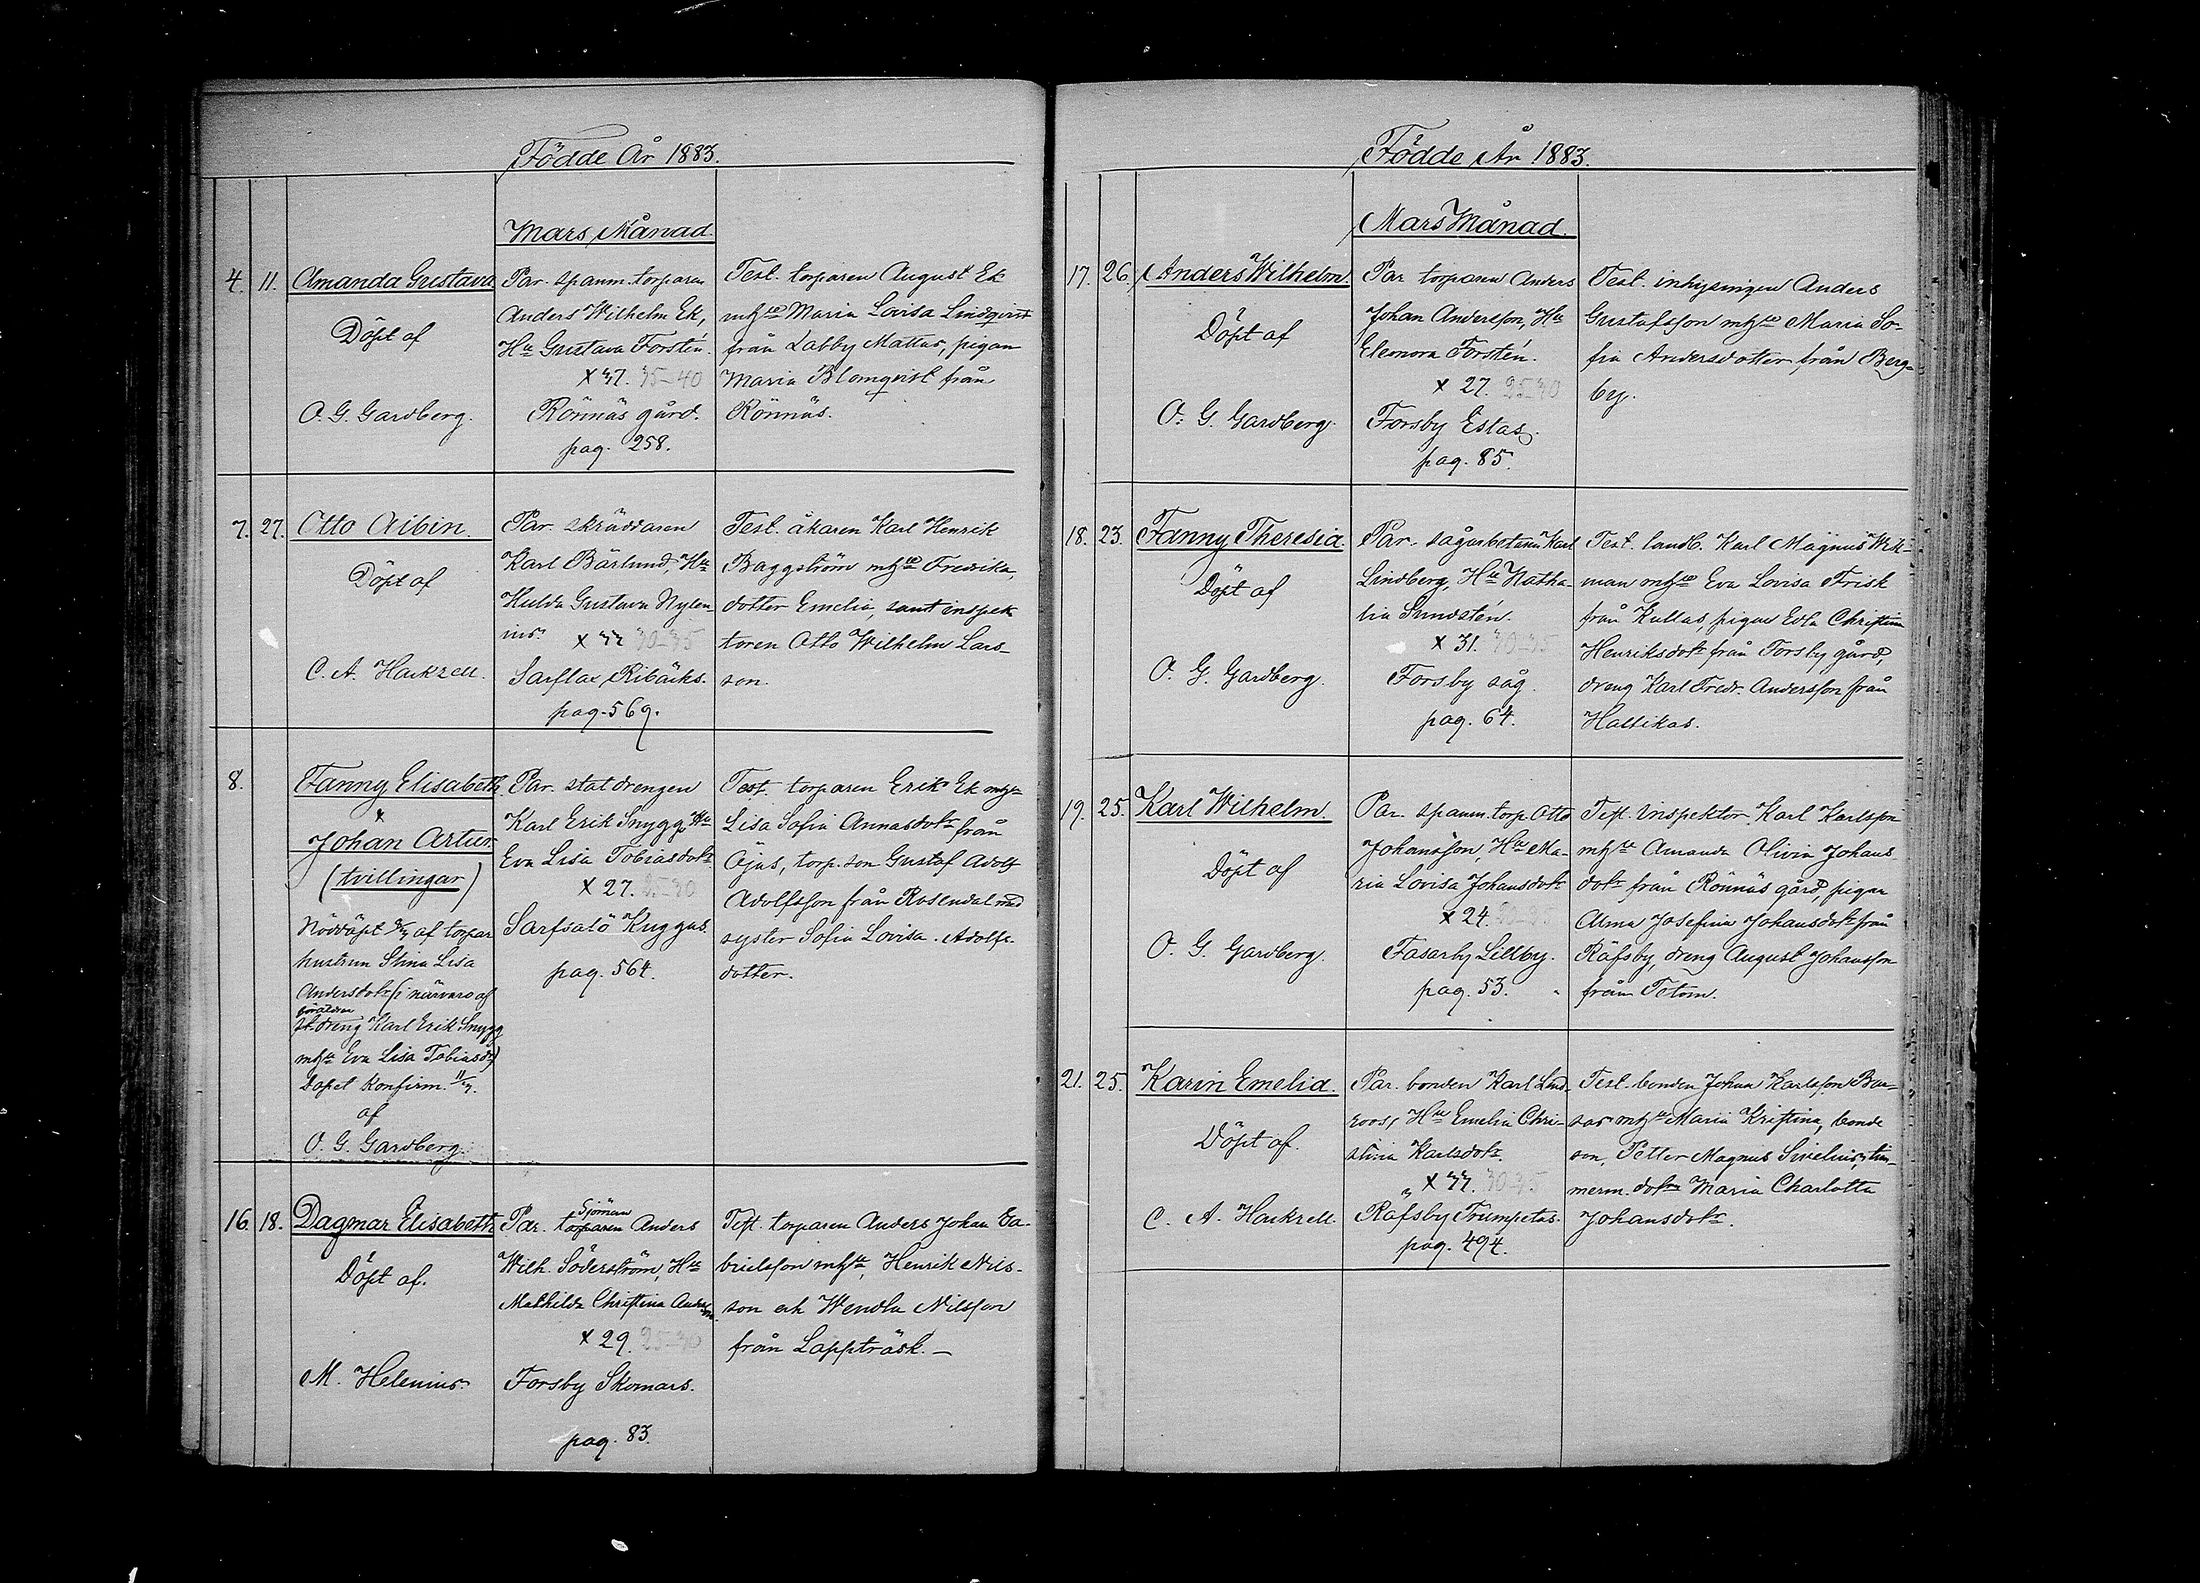 Födde År 1883.
Mars Månad.
4. 11. Amanda Gustava
Döpt af
O. G. Gardberg.
Par. spanm. torparen
Anders Wilhelm Ek,
Hu Gustava Forstén.
x 37. 35-40
Rönnäs gård.
pag. 258.
Test. torparen August Ek
mhu Maria Lovisa Lindqvist
från Labby Mattas, pigan
Maria Blomqvist från
Rönnäs.
7. 27. Otto Albin.
Döpt af
C. A. Hackzell.
Par. skräddaren
Karl Bärlund, Hu
Hulda Gustava Nylen-
ius.
x 33 30-35
Sarflax, Ribäcks.
pag. 569.
Test. åkaren Karl Henrik
Baggström mhu Fredrika,
dotter Emelia, samt inspek
toren Otto Wilhelm Lars-
son.
8. Fanny Elisabeth.
x
Johan Artur.
(tvillingar)
Nöddöpt af torpar
hustrun Stina Lisa
Andersdotr (i närvaro af
föräldrar
st.dreng Karl Erik Snygg
mhu Eva Lisa Tobiasdr)
Dopet konfirm. 11/3.
af
O. G. Gardberg.
Par. statdrengen
Karl Erik Snygg, Hu
Eva Lisa Tobiasdotr
x 27. 25-30
Sarfsalö Kuggas.
pag. 564.
Test. torparen Erik Ek mhu
Lisa Sofia Annasdotr från
Öjus, torp. son Gustaf Adolf
Adolfsson från Rosendal med
syster Sofia Lovisa Adolfs-
dotter.
16. 18. Dagmar Elisabeth
Döpt af.
M. Helenius.
Sjöman
Par. torparen Anders
Wilh. Söderström, Hu
Mathilda Christina Andersdr.
x 29. 25-30
Forsby Skomars.
pag. 83.
Test. torparen Anders Johan Ga-
brielsson mhu, Henrik Nils-
son och Wendla Nilsson
från Lappträsk. —
Födde År 1883.
Mars Månad.
17. 26. Anders Wilhelm.
Döpt af
O. G. Gardberg.
Par torparen Anders
Johan Andersson, Hu
Eleonora Forstén.
x 27. 25-30
Forsby Estas.
pag. 85.
Test. inhysingen Anders
Gustafsson mhu Maria So-
fia Andersdotter från Berg-
by.
18. 23. Fanny Theresia.
Döpt af
O. G. Gardberg.
Par. sågarbetaren Karl
Lindberg, Hu Natha-
lia Sundstén.
x 31. 30-35
Forsby såg.
pag. 64.
Test. landb. Karl Magnus Wik-
man mhu Eva Lovisa Frisk
från Kullas, pigan Edla Christina
Henriksdotr från Forsby gård,
dreng Karl Fredr. Andersson från
Hattikas.
19. 25. Karl Wilhelm.
Döpt af
O. G. Gardberg.
Par. spanm. torp. Otto
Johansson, Hu Ma-
ria Lovisa Johansdotr
x 24.
Fasarby Lillby.
pag. 53.
Test. Inspektor Karl Karlsson
mhu Amanda Olivia Johans
dotr från Rönnäs gård, pigan
Alma Josefina Johansdotr från
Räfsby, dreng August Johansson
från Tetom.
21. 25. Karin Emelia.
Döpt af.
C. A. Hackzell.
Par. bonden Karl Lind-
roos, Hu Emelia Chri-
stina Karlsdotr.
x 33. 30-35
Räfsby Trumpetas.
pag. 494.
Test. bonden Johan Karlsson
mhu Maria Kristina, bonde
son, Petter Magnus Sivelius, tim-
merm. dotrn Maria Charlotta
Johansdotr.